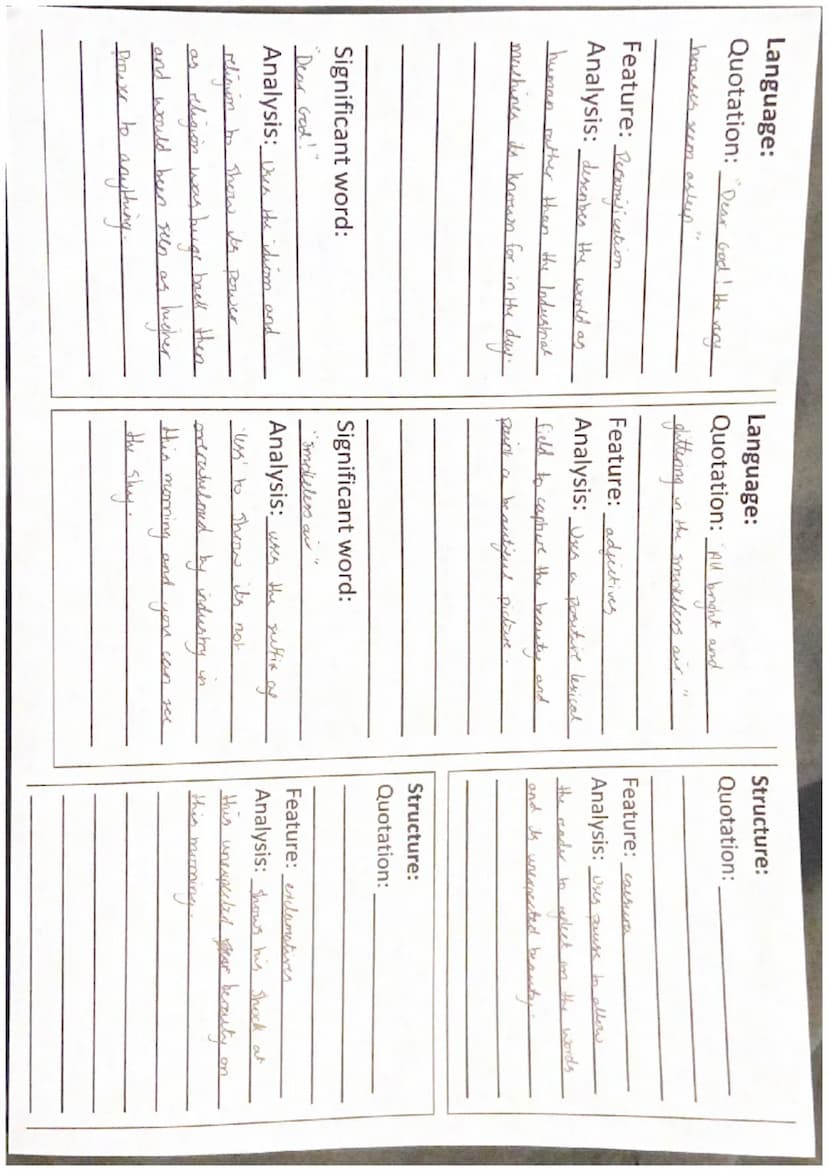 Language:
Quotation: "Dear God! the very
houses seem asleep"
Feature: Personification
Analysis: describes the world as
human rather than the Industrial
machines its known for in the day.
Significant word:
"Dear God!"
Analysis: Uses the idiom and
religion to show its power
as religion was huge back then
and would been seen as higher
Power to anything.
Language:
Quotation: "All bright and
glittering in the smokeless air."
Feature: adjectives
Analysis: Uses a positive lexical
field to capture the beauty and
paint a beautiful picture.
Significant word:
"Smokeless air"
Analysis: uses the suffix of
'less' to show its not
overwhelmed by industry in
this morning and you can see
the sky.
Structure:
Quotation:
Feature: caesura
Analysis: Uses pause to allow
the reader to reflect on the words
and its unexpected beauty.
Structure:
Quotation:
Feature: exclamatives
Analysis: Shows his shock at
this unexpected beauty on
this morning.